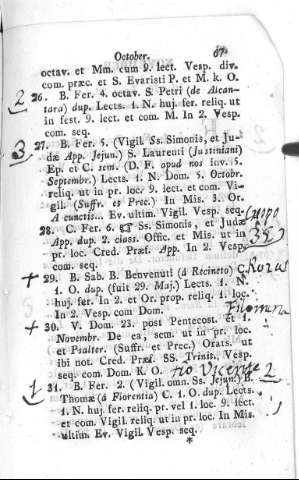 October. 67
octav. et Mm. cum 9. lect. Vesp. div.
com. præc. et S. Evaristi P. et M. k. O.
2 26. B. Fer. 4. octav. S. Petri (de Alcan-
tara) dup. Lects. 1. N. huj. fer. reliq. ut
in fest. 9. lect. et com. M. In 2. Vesp.
com. seq.
3 27. B. Fer. 5. (Vigil Ss. Simonis, et Ju-
dæ App. Jejun.) S. Laurenti (Justiniani)
Ep. et C. sem. (D. F. apud nos inv. 5.
Septembr.) Lects. 1. N. Dom. 5. Octobr.
reliq. ut in pr. loc. 9. lect. et com. Vi-
gil. (Suffr. et Prec.) In Mis. 3. Or.
A cunctis... Ev. ultim. Vigil. Vesp. seq.
28. C. Fer. 6. Ss. Simonis, et Judæ
App. dup. 2. class. Offic. et Mis. ut in
pr. loc. Cred. Præf. App. In 2. Vesp.
com. seq.
+ 29. B. Sab. B. Benvenuti (á Recineto) C.
1. O. dup. (fuit 29. Maj.) Lects. 1. N.
huj. fer. In 2. et Or. prop. reliq. 1. loc.
In 2. Vesp. com Dom. Filomena
+ 30. V. Dom. 23. post Pentecost. et 1.
Novembr. De ea, sem. ut in pr. loc.
et Psalter. (Suffr. et Prec.) Orats. ut
ibi not. Cred. Præf. SS. Trinit. Vesp.
seq. com. Dom. K. O. tio Vicente 2
1 31. B. Fer. 2. (Vigil. omn. Ss. Jejun.) B.
Thomæ (á Florentia) C. 1. O. dup. Lects.
1. N. huj. fer. reliq. pr. vel 1. loc. 9. lect.
et com. Vigil. reliq. ut in pr. loc. In Mis.
ultim Ev. Vigil Vesp. seq.
*